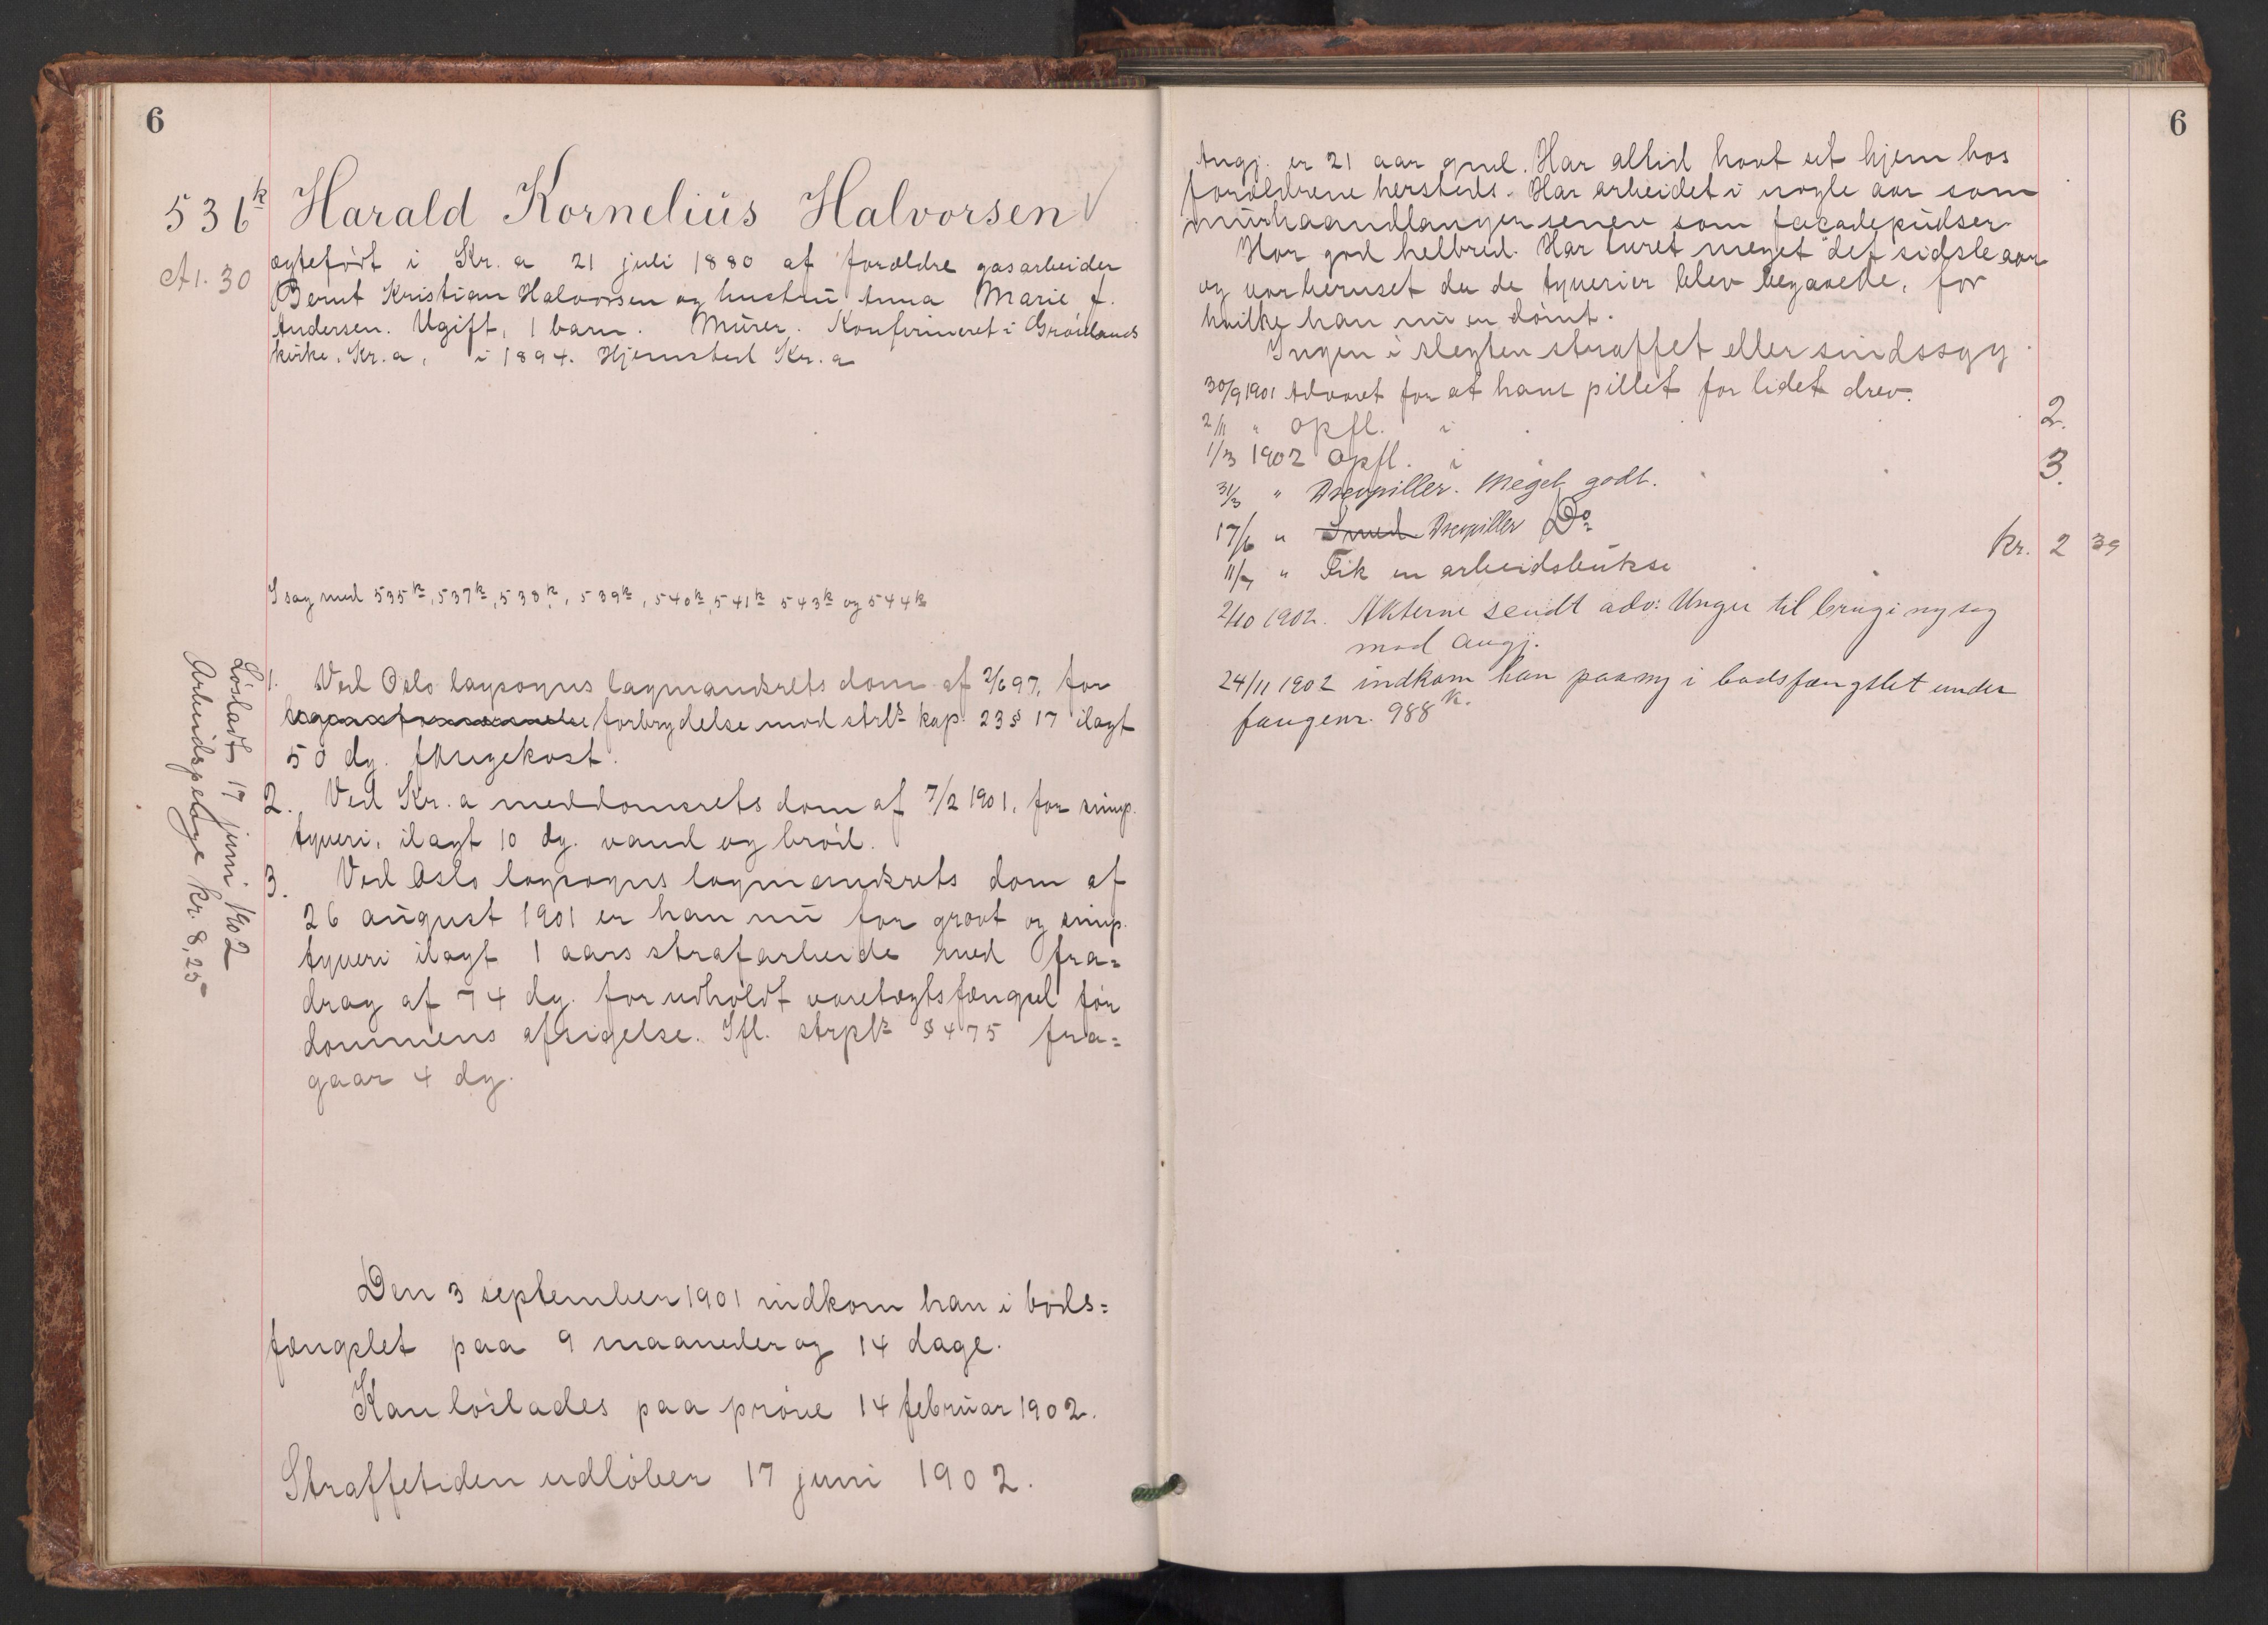 6
536k Harald Kornelius Halvorsen
A1. 30
egtefødt i Kr.a 21 juli 1880 af forældre gasarbeider
Bernt Kristian Halvorsen og hustru Anna Marie f.
Andersen. Ugift, 1 barn. Murer. Konfirmeret i Grønlands
kirke, Kr.a, i 1894. Hjemsted Kr.a
I sag med 535k, 537k, 538k, 539k, 540k, 541k 543k og 544k
1. Ved Oslo lagsogns lagmandsrets dom af 2/6 97, for
forbrydelse mod strl. kap. 23 § 17 ilagt
50 dg. fangekost.
2. Ved Kr.a meddomsrets dom af 7/2 1901, for simp.
tyveri, ilagt 10 dg. vand og brød.
3. Ved Oslo lagsogns lagmandsrets dom af
26 august 1901 er han nu for grovt og simp.
tyveri ilagt 1 aars strafarbeide med fra=
drag af 74 dg. for udholdt varetægtsfængsel før
dommens afsigelse. Ifl. strpl. § 475 fra=
gaar 4 dg.
Løsladt 17 juni 1902
Arbeidspenge kr. 8,25
Den 3 september 1901 indkom han i bods=
fængslet paa 9 maaneder og 14 dage.
Kan løslades paa prøve 14 februar 1902.
Straffetiden udløber 17 juni 1902.
6
Angj. er 21 aar gml. Har altid havt sit hjem hos
forældrene hersteds. Har arbeidet i nogle aar som
murhaandlanger senere som facadepudser.
Har god helbred. Har turet meget det sidste aar
og var beruset da de tyverier blev begaaede, for
hvilke han nu er dømt.
Ingen i slegten straffet eller sindssyg.
30/9 1901 Advaret for at have pillet for lidet drev.
2/11 " Opfl. i 2.
1/3 1902 Opfl. i 3.
31/3 " Drevpiller. Meget godt.
17/6 " Smed Drevpiller Do
11/7 " Fik en arbeidsbukse kr. 2 39
2/10 1902. Akterne sendt adv: Unger til brug i ny sag
mod angj.
24/11 1902 indkom han paany i bodsfængslet under
fangenr. 988k.